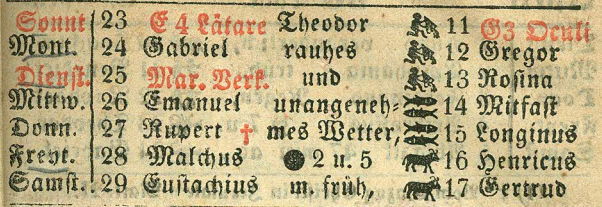 Sonnt 23 E 4 Lätare Theodor 11 G3 Oculi
Mont. 24 Gabriel rauhes 12 Gregor
Dienst. 25 Mar. Verk. und 13 Rosina
Mittw. 26 Emanuel unangeneh- 14 Mitfast
Donn. 27 Rupert † mes Wetter, 15 Longinus
Freyt. 28 Malchus ● 2 u. 5 16 Henricus
Samst. 29 Eustachius m. früh, 17 Gertrud